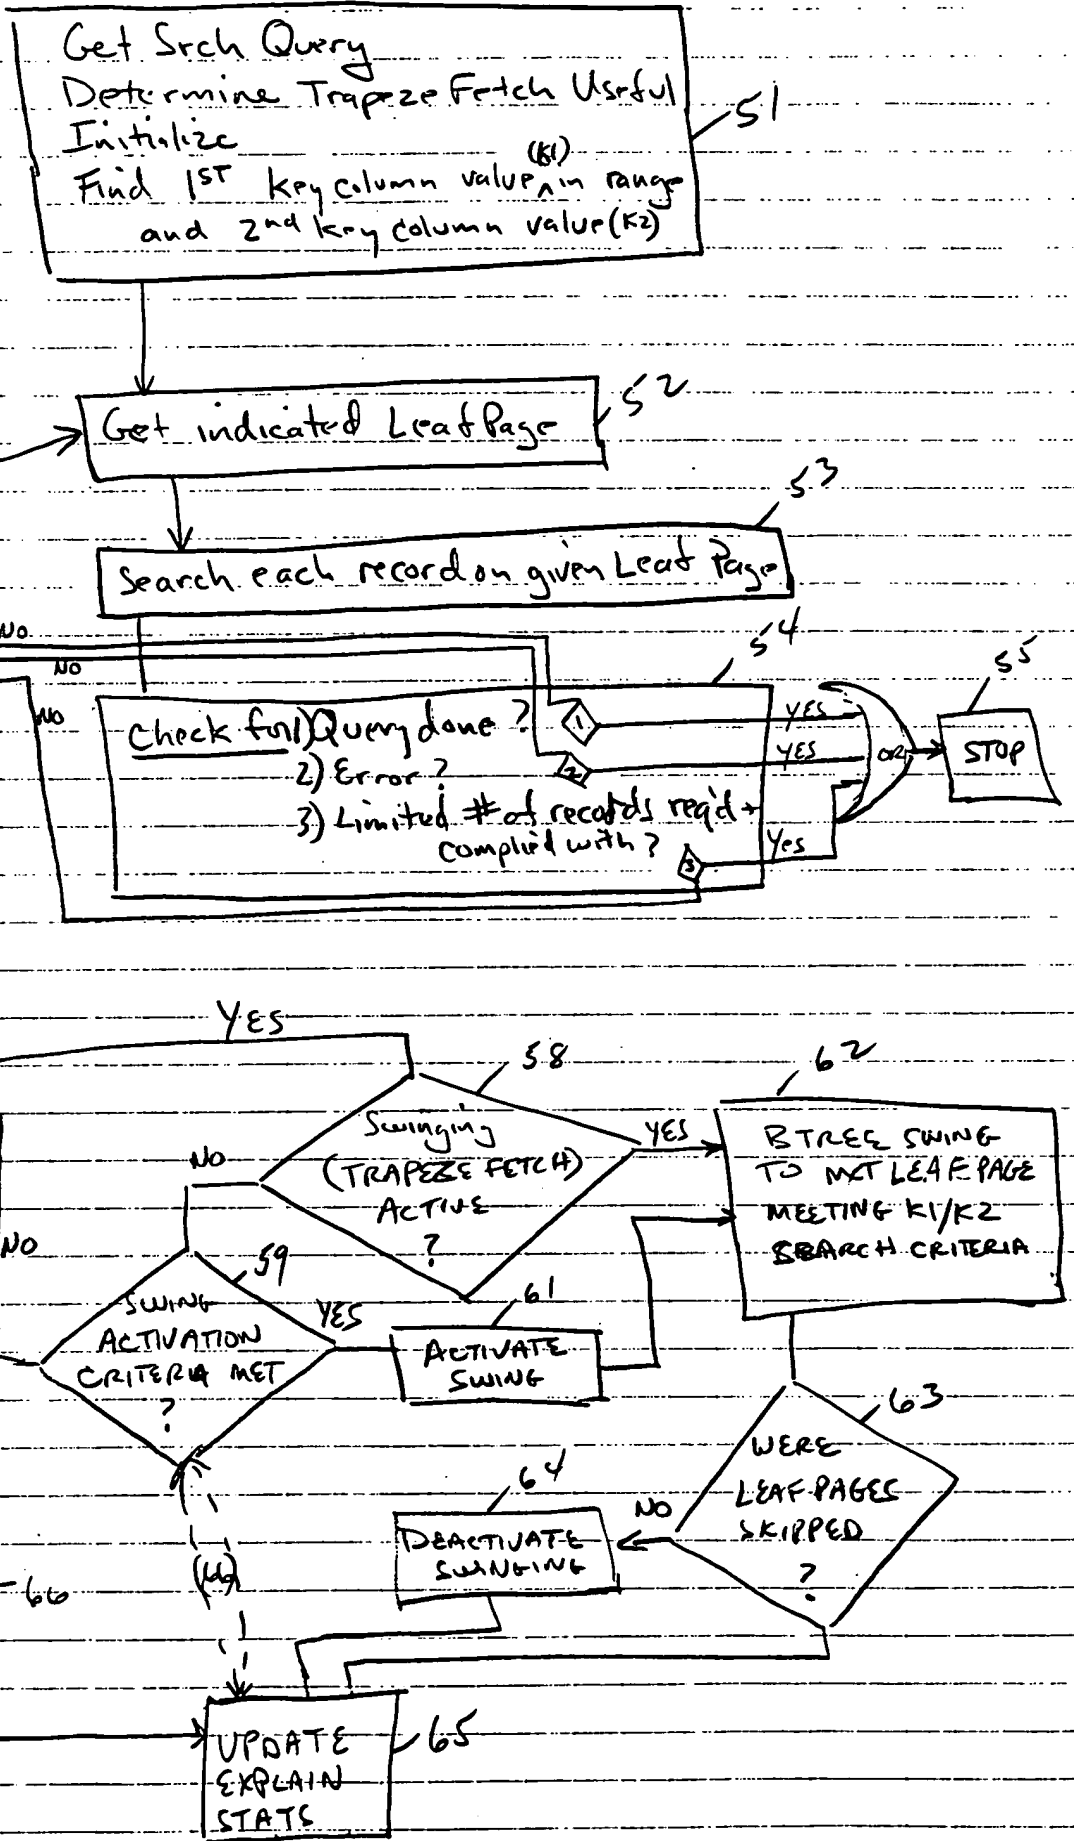 Get Srch Query
Determine Trapeze Fetch Useful
Initialize
(K1)
Find 1ST key column value ^ in range
and 2nd key column value (K2)
51
Get indicated Leaf Page
52
53
Search each record on given Leaf Page
NO
NO
NO
54
55
Check for 1) Query done ?
1
YES
2) Error ?
2
YES
OR
STOP
3) Limited # of records req'd +
complied with ?
3
Yes
YES
58
62
Swinging
(TRAPEZE FETCH)
ACTIVE
?
NO
YES
BTREE SWING
TO NXT LEAF PAGE
MEETING K1/K2
SEARCH CRITERIA
NO
59
SWING
ACTIVATION
CRITERIA MET
?
YES
61
ACTIVATE
SWING
63
WERE
LEAF PAGES
SKIPPED
?
NO
64
DEACTIVATE
SWINGING
66
(66)
UPDATE
EXPLAIN
STATS
65